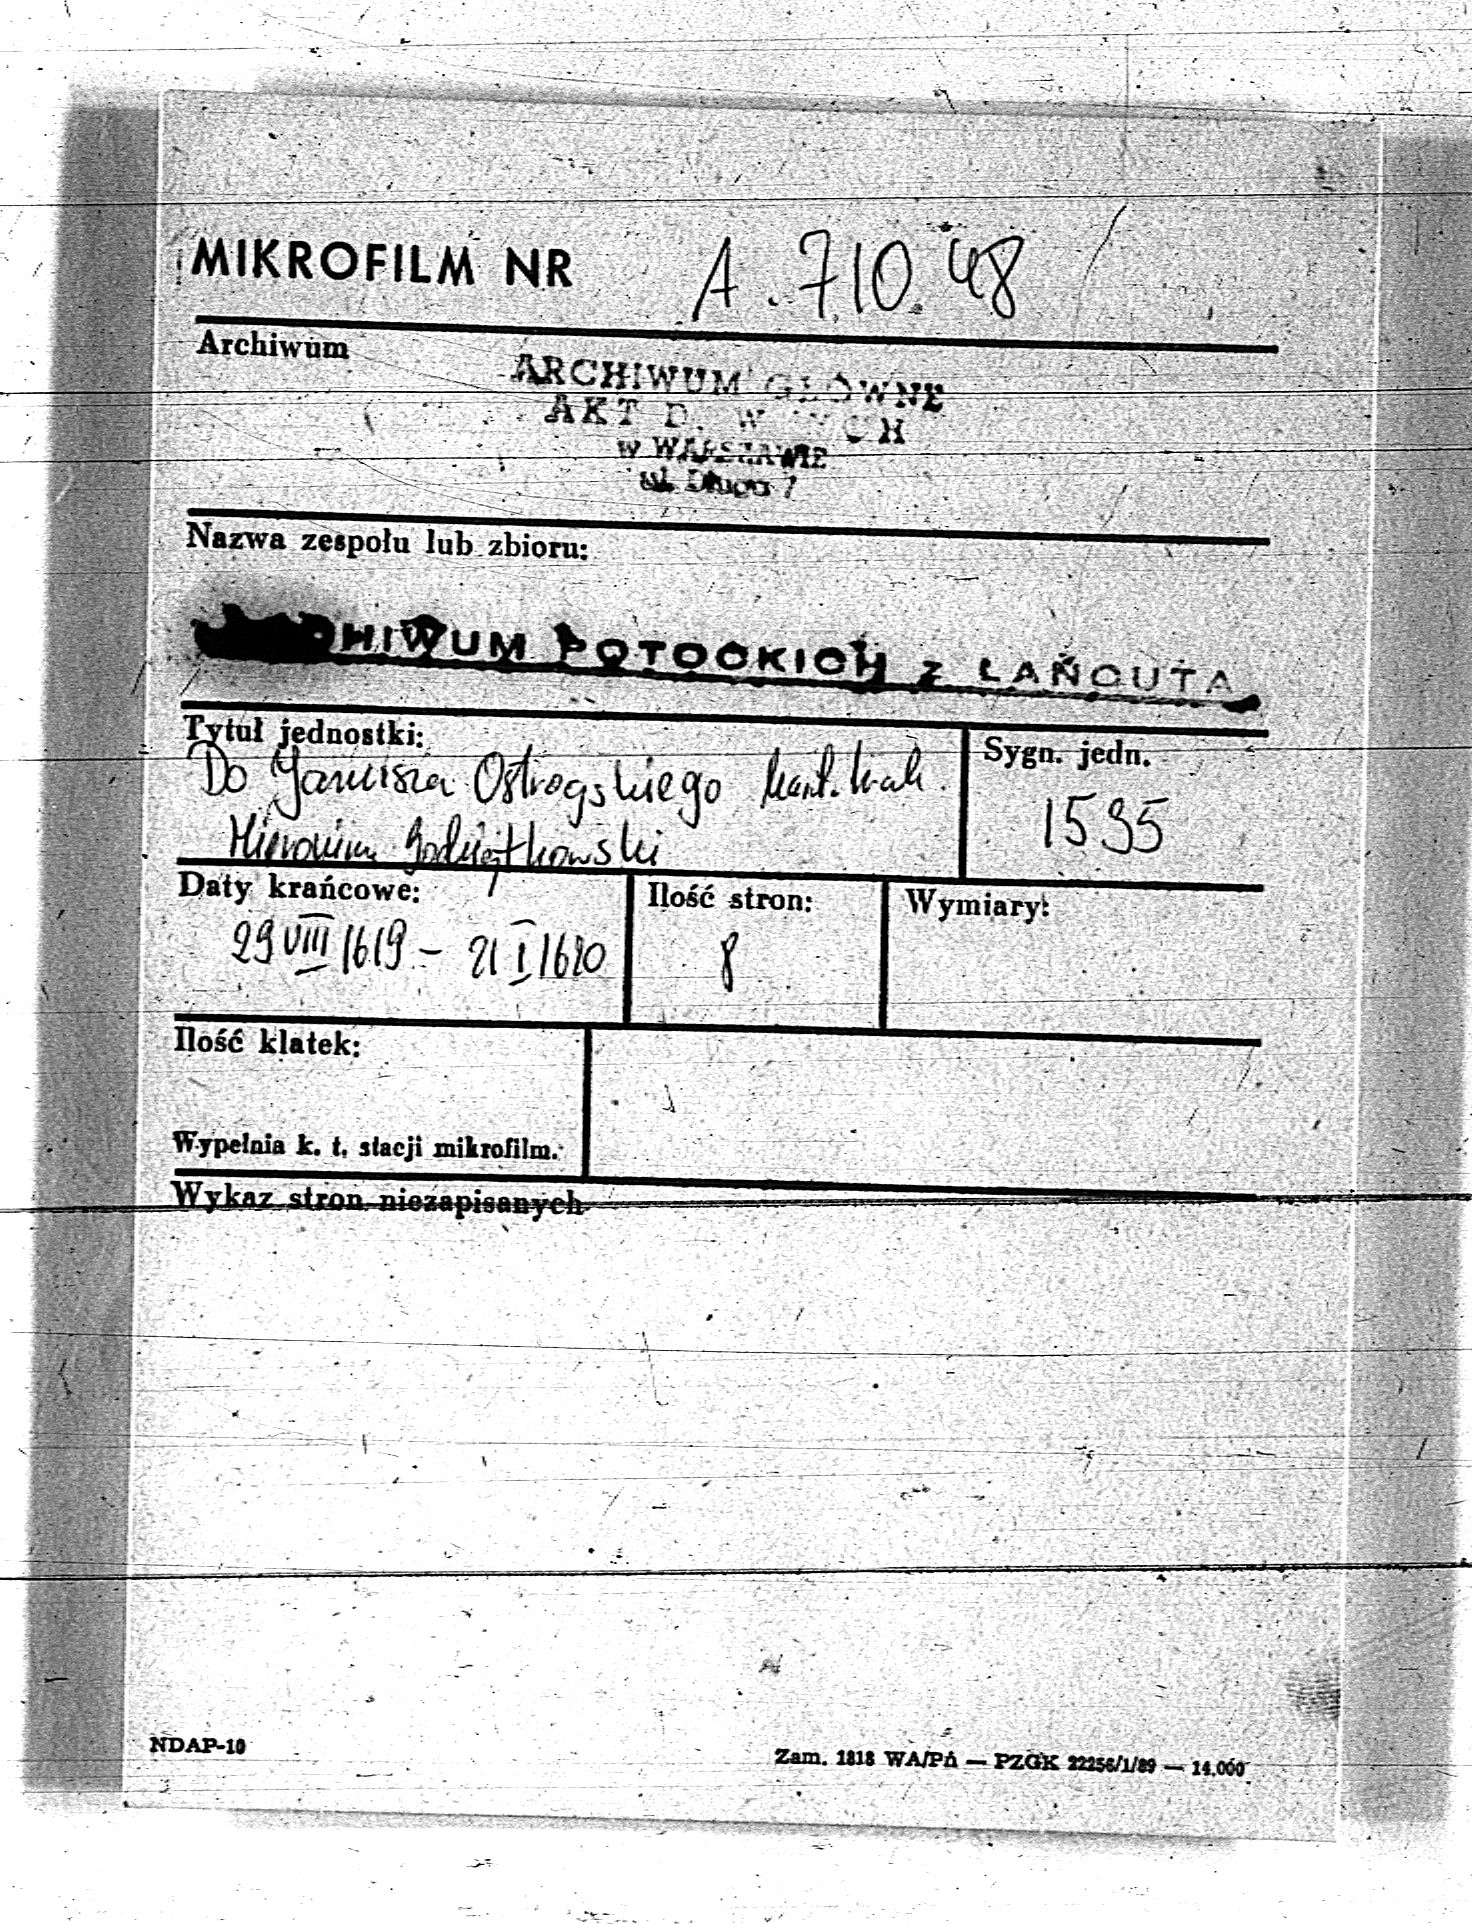 MIKROFILM NR A.710.48
Archiwum
ARCHIWUM GŁÓWNE
AKT D. W YCH
W WARSZAWIE
ul. Długa 7
Nazwa zespołu lub zbioru:
ARCHIWUM POTOCKICH Z ŁAŃCUTA
Tytuł jednostki:
Sygn. jedn.
Do Janusza Ostrogskiego kaszt. krak.
1595
Hieronim
Daty krańcowe:
Ilość stron:
Wymiary:
29 VIII 1619 - 21 I 1620
8
Ilość klatek:
Wypełnia k. t. stacji mikrofilm.
Wykaz stron niezapisanych
NDAP-10
Zam. 1818 WA/Pń — PZGK 22256/1/89 — 14.000